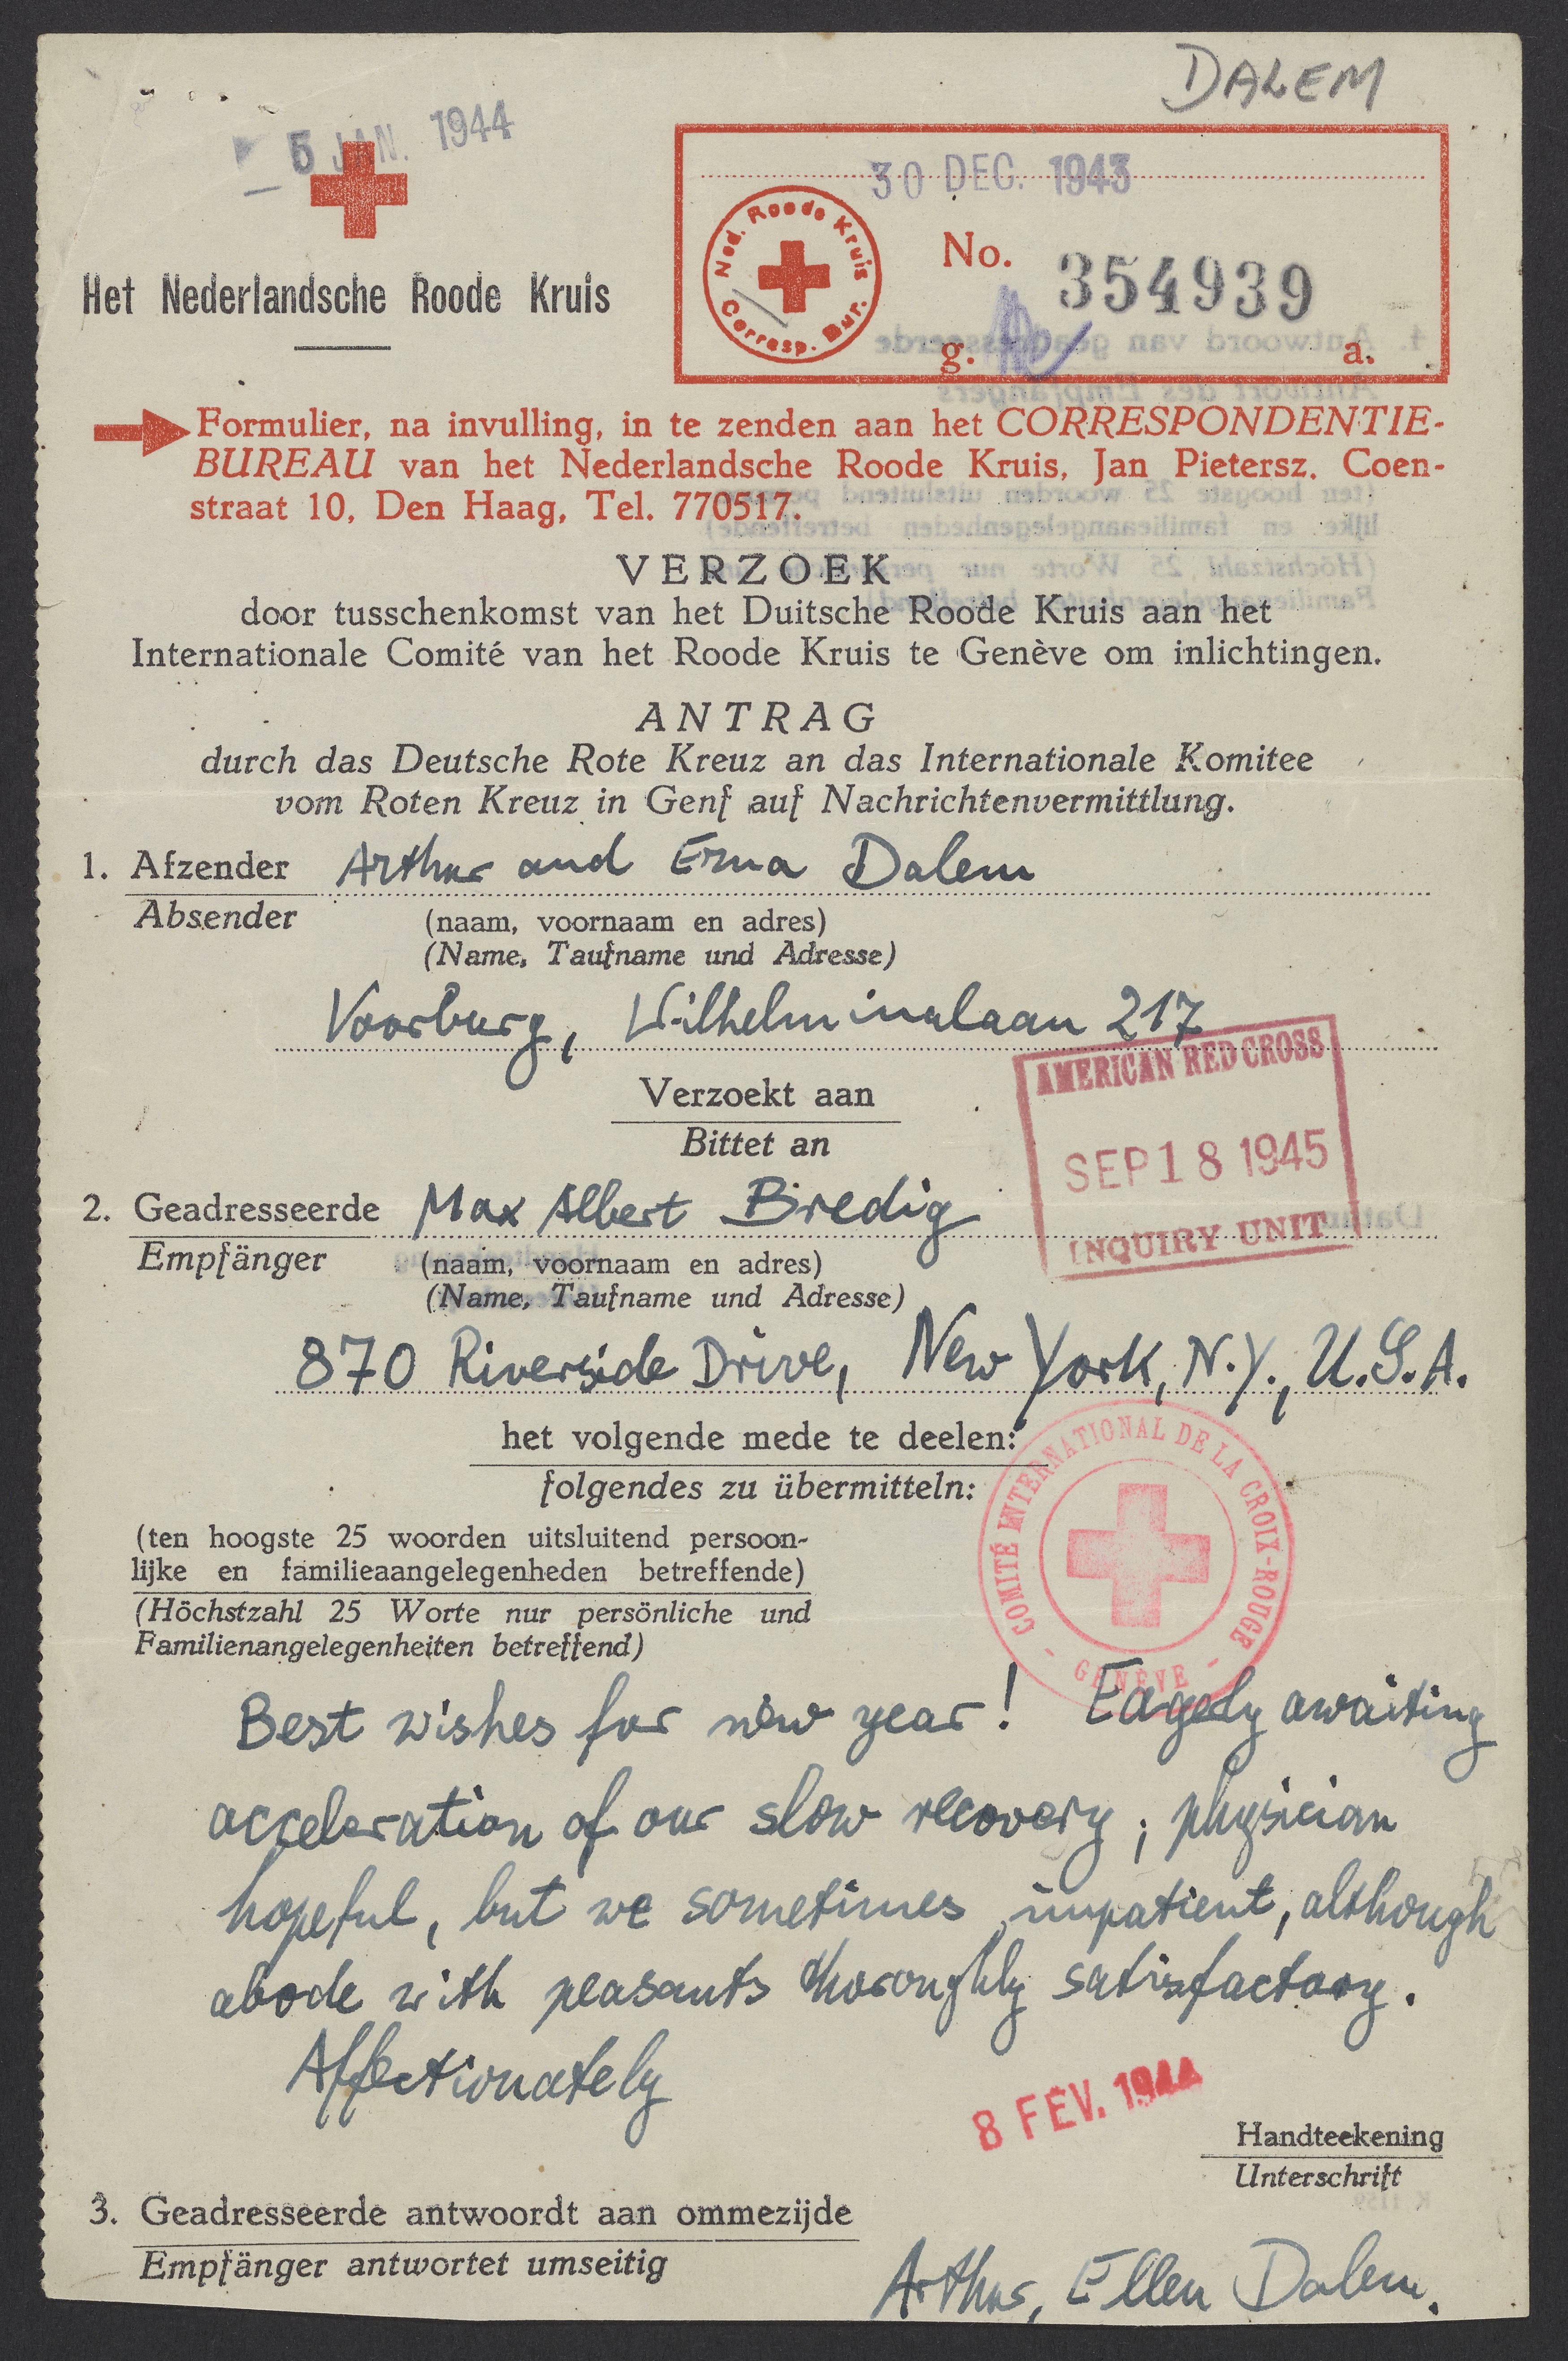 DALEM
5 JAN. 1944
30 DEC. 1943
Ned. Roode Kruis
Corresp. Bur.
No. 354939
g. a.
Het Nederlandsche Roode Kruis
Formulier, na invulling, in te zenden aan het CORRESPONDENTIE-
BUREAU van het Nederlandsche Roode Kruis, Jan Pietersz. Coen-
straat 10, Den Haag, Tel. 770517.
VERZOEK
door tusschenkomst van het Duitsche Roode Kruis aan het
Internationale Comité van het Roode Kruis te Genève om inlichtingen.
ANTRAG
durch das Deutsche Rote Kreuz an das Internationale Komitee
vom Roten Kreuz in Genf auf Nachrichtenvermittlung.
1. Afzender Arthur and Erna Dalem
Absender
(naam, voornaam en adres)
(Name, Taufname und Adresse)
Voorburg, Wilhelminalaan 217
Verzoekt aan
Bittet an
AMERICAN RED CROSS
SEP 18 1945
INQUIRY UNIT
2. Geadresseerde Max Albert Bredig
Empfänger
(naam, voornaam en adres)
(Name, Taufname und Adresse)
870 Riverside Drive, New York, N.Y., U.S.A.
het volgende mede te deelen:
folgendes zu übermitteln:
COMITÉ INTERNATIONAL DE LA CROIX-ROUGE
- GENÈVE -
(ten hoogste 25 woorden uitsluitend persoon-
lijke en familieaangelegenheden betreffende)
(Höchstzahl 25 Worte nur persönliche und
Familienangelegenheiten betreffend)
Best wishes for new year! Eagerly awaiting
acceleration of our slow recovery; physician
hopeful, but we sometimes impatient, although
abode with peasants thoroughly satisfactory.
Affectionately
8 FÉV. 1944
Handteekening
Unterschrift
3. Geadresseerde antwoordt aan ommezijde
Empfänger antwortet umseitig
Arthur, Ellen Dalem.